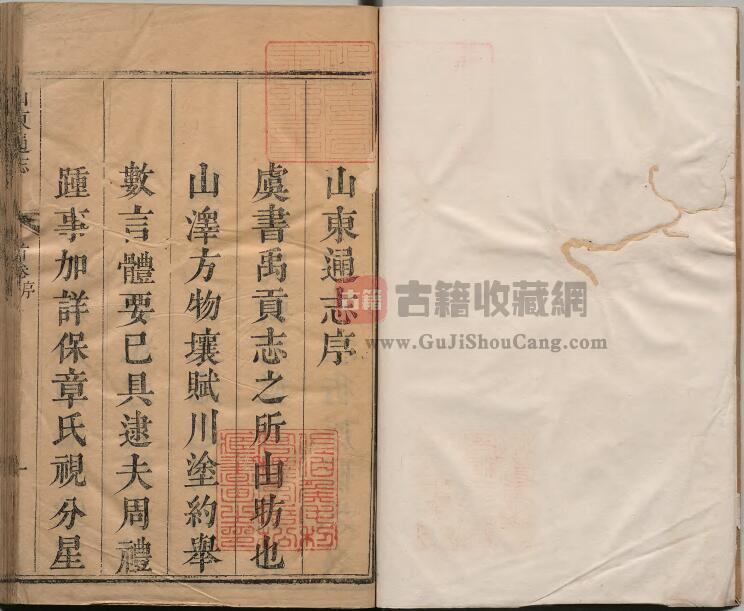 山東通志序
虞書禹貢志之所由昉也
山澤方物壤賦川塗約舉
數言體要已具逮夫周禮
踵事加詳保章氏視分星
山東通志
首卷序
一
古籍
古籍收藏網
www.GuJiShouCang.com